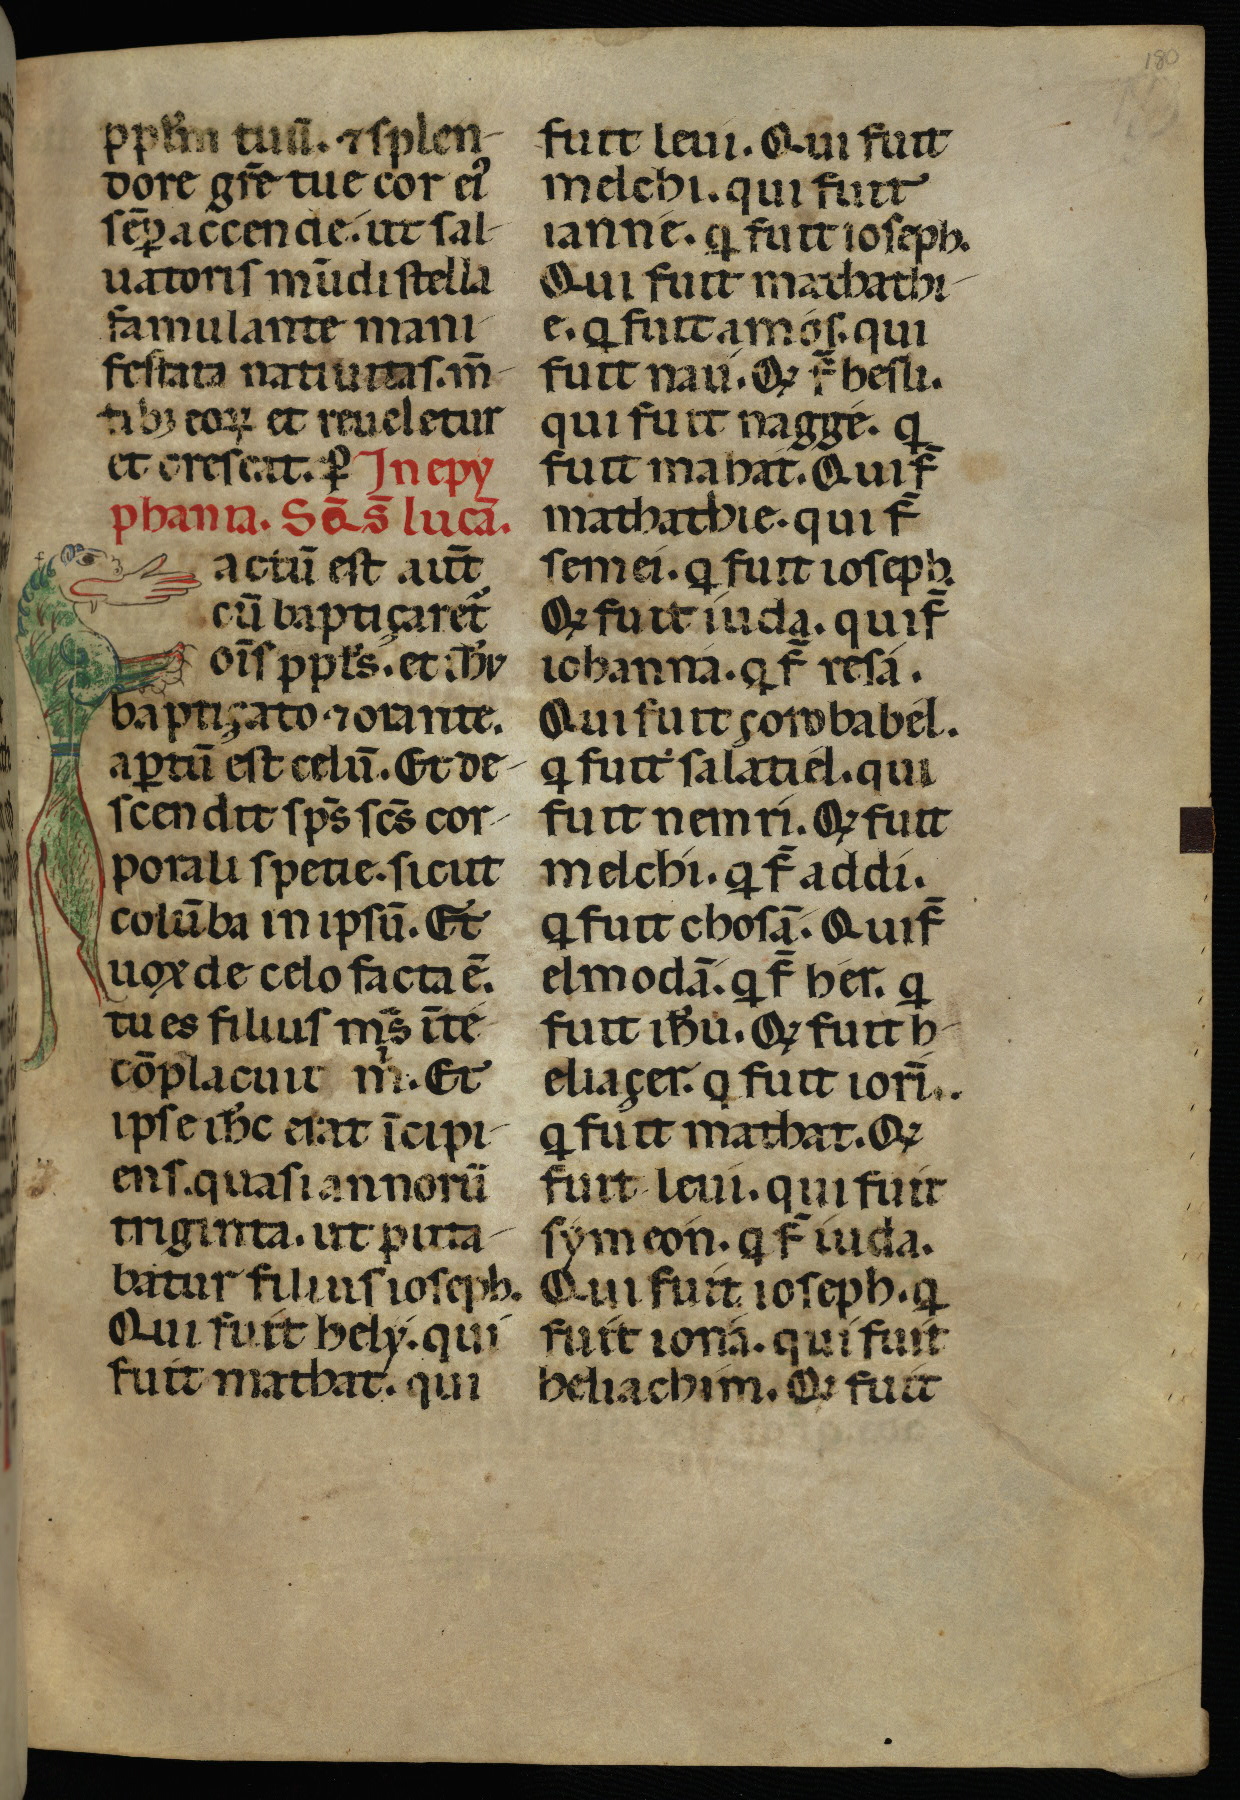 180
ppl̄m tuū. ⁊ splen-
dore gr̄e tue cor eiꝰ
sēꝑ accende. ut sal-
uatoris mūdi stella
famulante mani-
festata natiuitas. m̄-
tibꝫ eoꝝ et reueletur
et crescat. ꝑ In epy
phania. Sc̄ds̄ lucā.
actū est aut̄
cū baptiçaret᷑
oīs ppl̄s. et ih̄u
baptiçato ⁊ orante.
aꝑtū est celū. Et de-
scendit sp̄s sc̄s cor-
porali spetie. sicut
colūba in ipsū. Et
uox de celo facta ē.
tu es filius m̄s īte
cōplacuit m̄. Et
ipse ih̄c erat īcipi-
ens. quasi annorū
triginta. ut puta-
batur filius ioseph.
Qui fuit hely. qui
fuit mathat. qui
fuit leui. Qui fuit
melchi. qui fuit
ianne. q fuit ioseph.
Qui fuit mathathi-
e. q fuit amos. qui
fuit nau. Qꝫ f̄ hesli.
qui fuit nagge. q
fuit mahat. Qui f̄
mathathie. qui f̄
semei. q fuit ioseph.
Qꝫ fuit iuda. qui f̄
iohanna. q f̄ resa.
Qui fuit çorobabel.
q fuit salatiel. qui
fuit nemri. Qꝫ fuit
melchi. q f̄ addi.
q fuit chosā. Qui f̄
elmodā. q f̄ her. q
fuit ih̄u. Qꝫ fuit h-
eliaçer. q fuit iorī.
q fuit mathat. Qꝫ
fuit leui. qui fuit
symeon. q f̄ iuda.
Qui fuit ioseph. q
fuit iona. qui fuit
heliachim. Qꝫ fuit